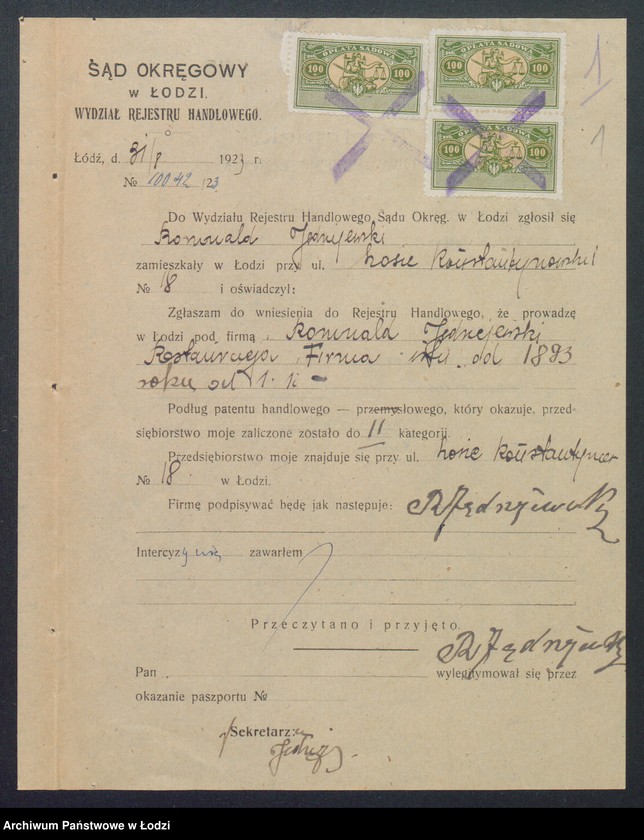 OPŁATA SĄDOWA
100 100
OPŁATA SĄDOWA
100 100
OPŁATA SĄDOWA
100 100
1
1
SĄD OKRĘGOWY
w ŁODZI.
WYDZIAŁ REJESTRU HANDLOWEGO.
Łódź, d. 31/8 1923 r.
№ 10042/23
Do Wydziału Rejestru Handlowego Sądu Okręg. w Łodzi zgłosił się
Romuald
zamieszkały w Łodzi przy ul.
№ 18 i oświadczył:
Zgłaszam do wniesienia do Rejestru Handlowego, że prowadzę
w Łodzi pod firmą „Romuald
Firma od 1893
roku od
Podług patentu handlowego — przemysłowego, który okazuje, przed-
siębiorstwo moje zaliczone zostało do II kategorji.
Przedsiębiorstwo moje znajduje się przy ul.
№ 18 w Łodzi.
Firmę podpisywać będę jak następuje:
Intercyzy nie zawarłem
Przeczytano i przyjęto.
Pan wylegitymował się przez
okazanie paszportu №
Sekretarz:
Archiwum Państwowe w Łodzi